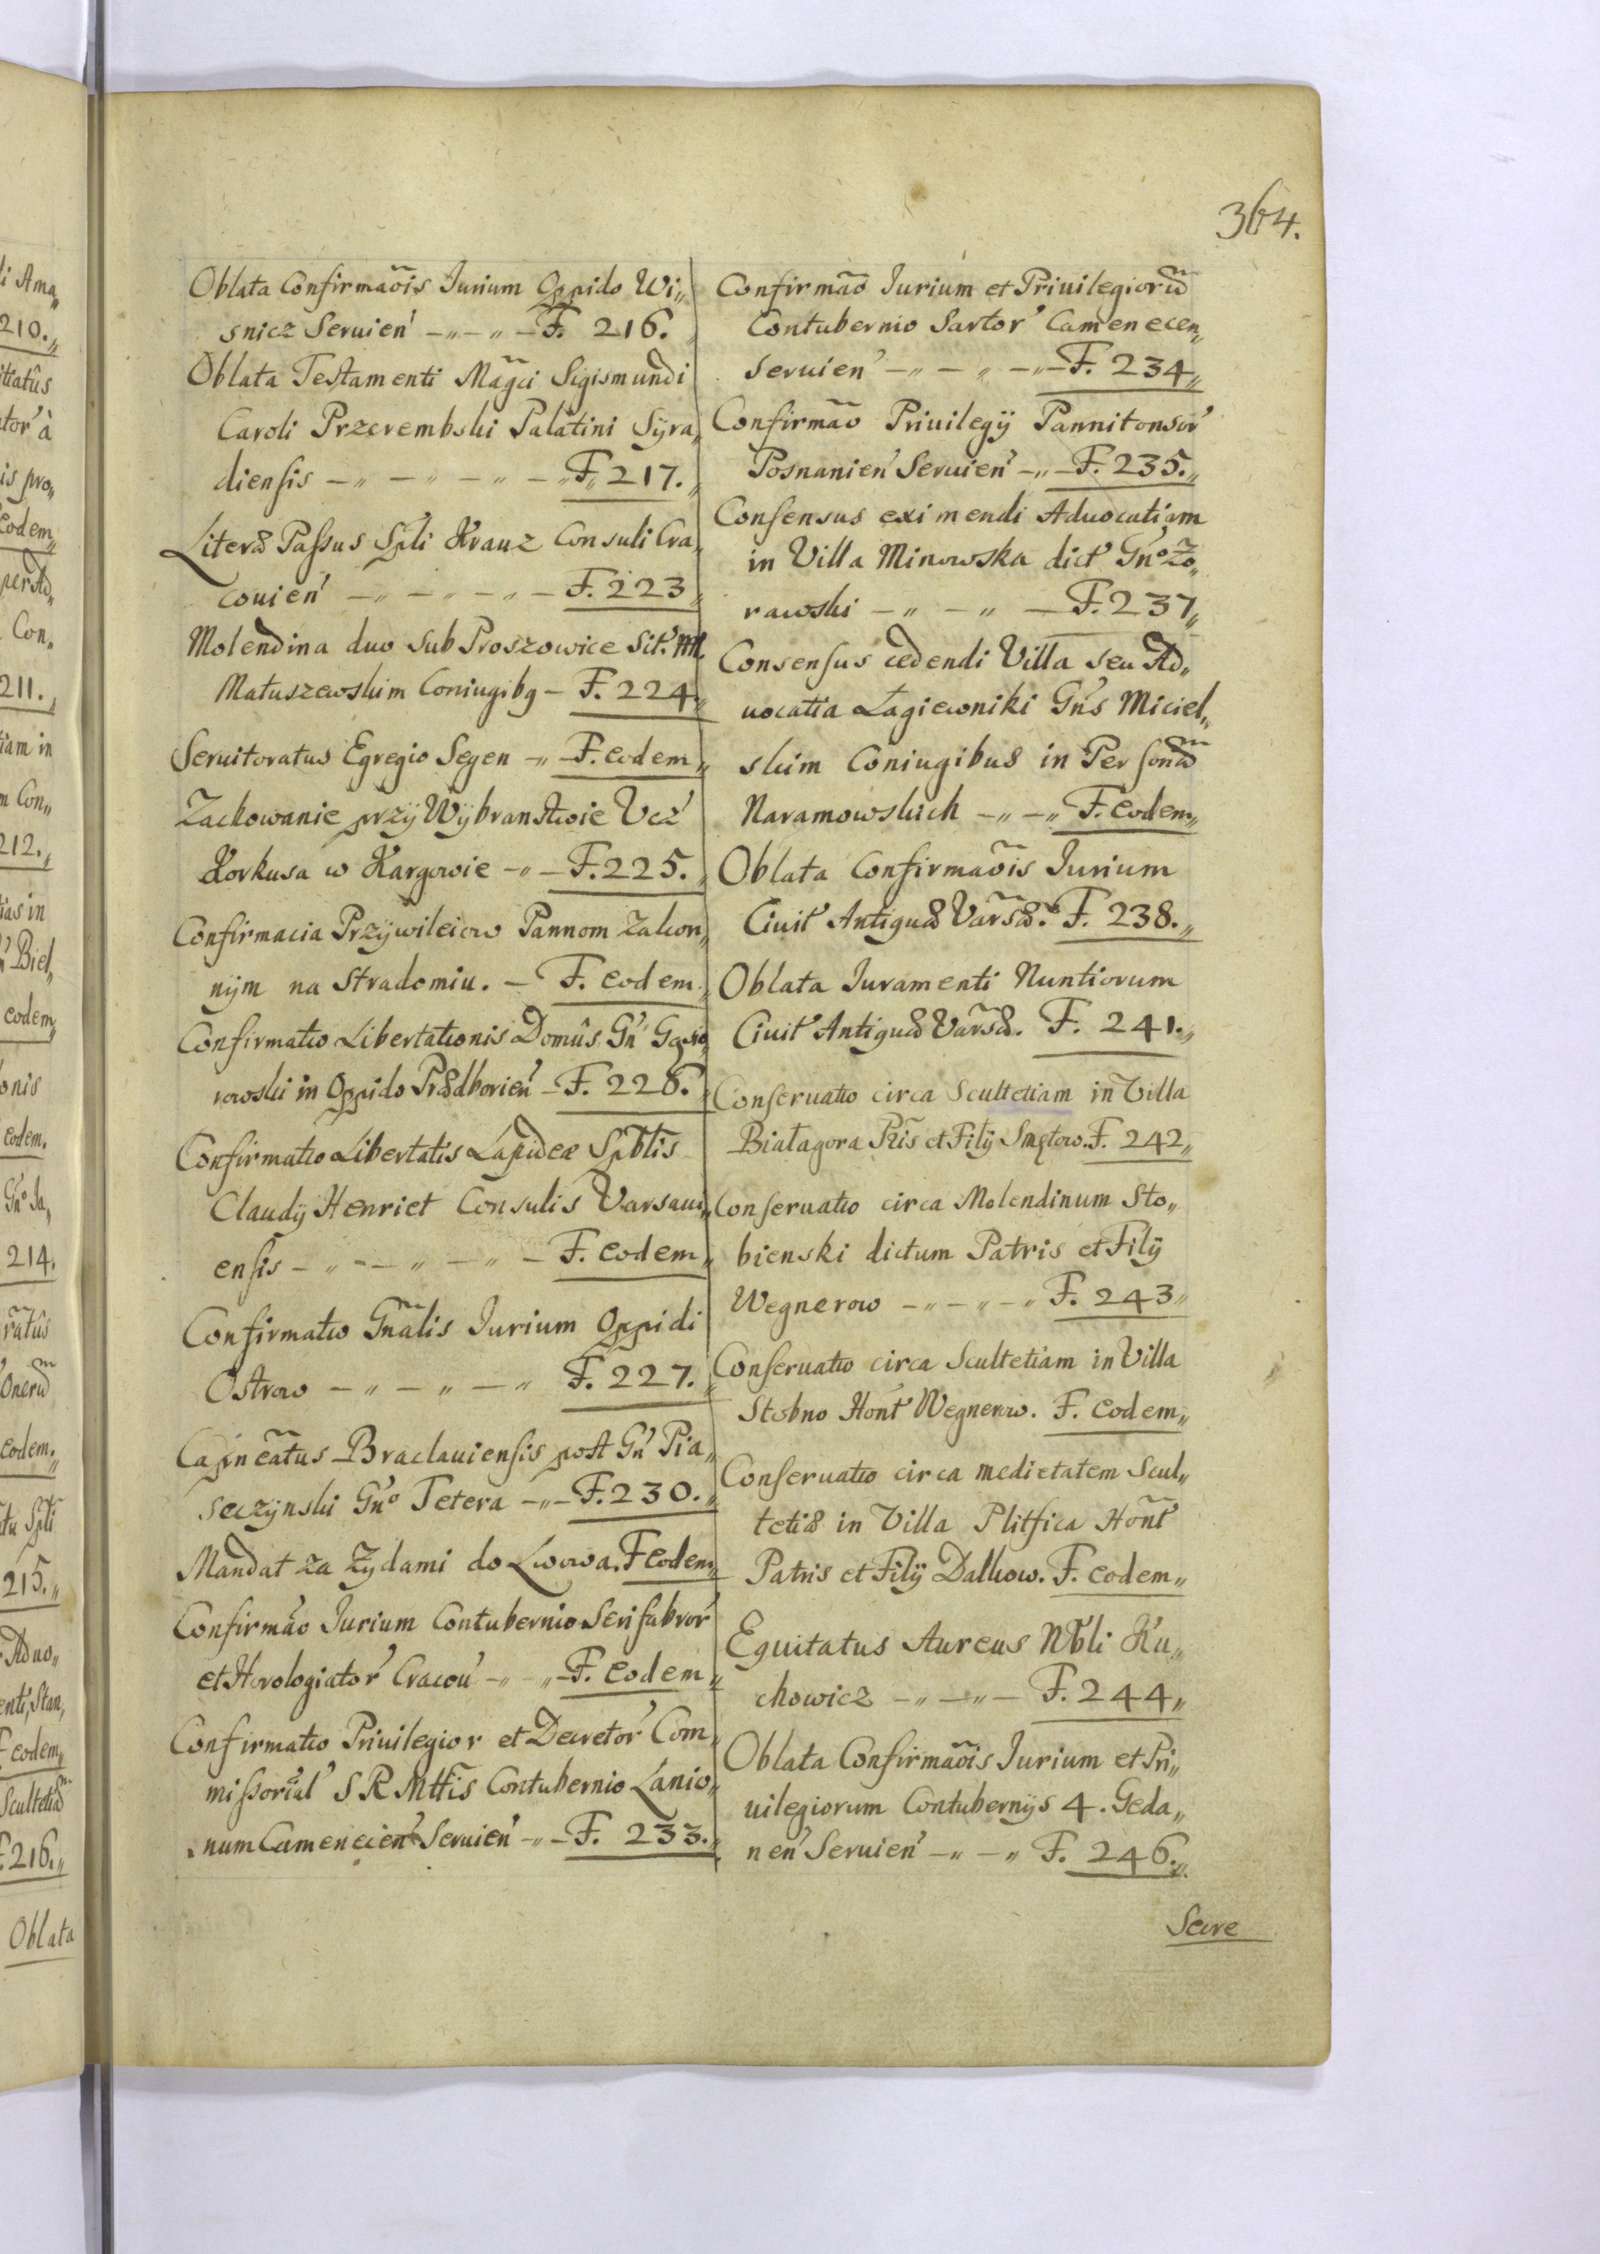 364.
Oblata Confirmaõis Iurium Oppido Wi„
snicz Seruien' -„-„- F. 216.
Oblata Testamenti Mãgci Sigismundi
Caroli Przerembski Palatini Syra„
diensis -„-„-„- F. 217.
Literæ Passus Spli Krauz Consuli Cra„
couien' -„-„-„- F. 223„
Molendina duo sub Proszowice sit. M.
Matuszewskim Coniugibg - F. 224„
Seruitoratus Egregio Segen -„- F. eodem„
Zachowanie przÿ Wÿbranstwie Vcz'
Korkusa w Kargowie -„- F. 225.„
Confirmacia Przÿwileiow Pannom Zakon„
nÿm na Stradomiu. - F. eodem„
Confirmatio Libertationis Domûs Gn'
rowski in Oppido Prædborien' - F. 226.„
Confirmatio Libertatis Lapideæ Spbtis
Claudÿ Henriet Consulis Varsaui„
ensis -„-„-„- F. eodem„
Confirmatio Gñalis Iurium Oppidi
Ostrow -„-„-„ F. 227.„
Capineãtus Braclauiensis post Gn' Pia„
seczÿnski Gn'o Tetera -„- F. 230.„
Mandat za Zydami do Lwowa. F eodem„
Confirmão Iurium Contubernio Serifabror'
et Horologiator' Cracou' -„-„- F. eodem„
Confirmatio Priuilegior et Decretor' Com„
missorial' S R Mttis Contubernio Lanio„
num Camenecien' Seruien' -„- F. 233.„
Confirmão Iurium et Priuilegioru
Contubernio Sartor' Camenecen„
seruien' -„-„-„- F. 234„
Confirmão Priuilegÿ Pannitonsor'
Posnanien' Seruien' -„- F. 235.„
Consensus eximendi Aduocatiam
in Villa Minowska dict' Gn'o Zo„
rawski -„-„- F. 237„
Consensus cedendi Villa seu Ad„
uocatia Łagiewniki Gn's Miciel„
skim Coniugibus in Personã
Naramowskich -„-„ F. eodem„
Oblata Confirmaõis Iurium
Ciuit' Antiquæ Varsæ. F. 238.„
Oblata Iuramenti Nuntiorum
Ciuit' Antiquæ Varsæ. F. 241.„
Conseruatio circa Scultetiam in Villa
Białagora Pris et Filÿ F. 242„
Conseruatio circa Molendinum Sto„
bienski dictum Patris et Filÿ
Wegnerow -„-„-„ F. 243„
Conseruatio circa Scultetiam in Villa
Stobno Hont' Wegnerow. F. eodem„
Conseruatio circa medietatem Scul„
tetiæ in Villa Plitfica Hont'
Patris et Filÿ Dalkow. F. eodem„
Equitatus Aureus Nbli Ku„
chowicz -„-„- F. 244„
Oblata Confirmaõis Iurium et Pri„
uilegiorum Contubernÿs 4. Geda„
nen' Seruien' -„-„ F. 246.„
Secre